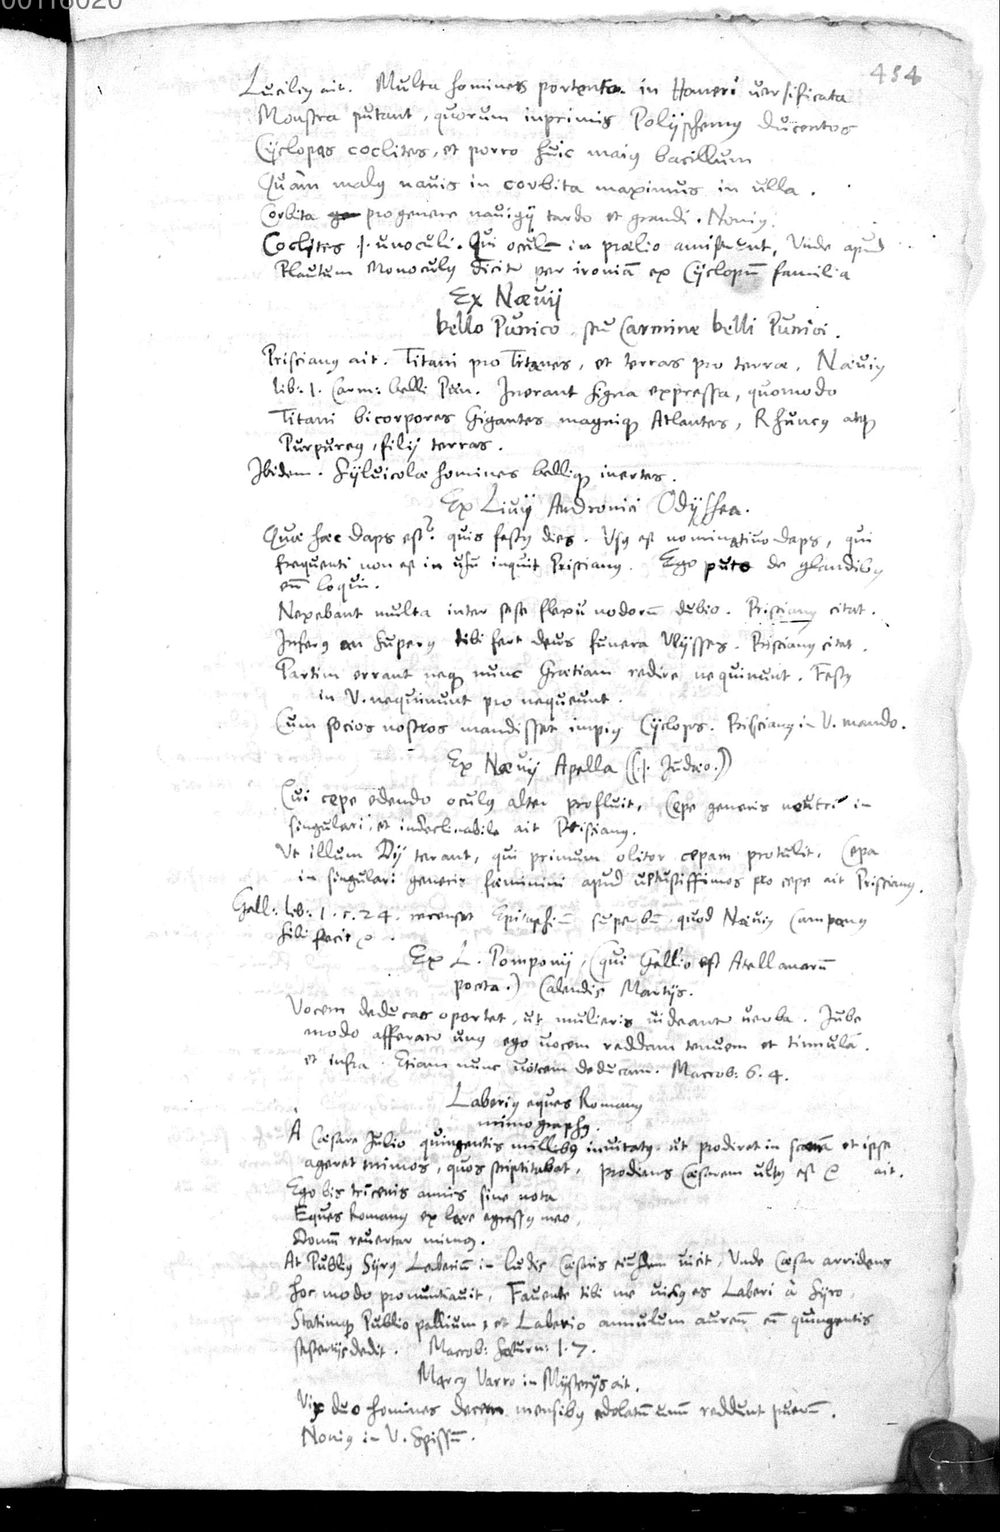 00116020
454
Lucilius ait. Multa homines portenta in Homeri uersificata
Monstra putant, quorum inprimis Polÿphemus ducentos
Cÿclopas coclites, et porro huic maius bacillum
Quàm malus nauis in corbita maximus in ulla.
Corbita pro genere nauigÿ tardo et grandi. Nonius.
Coclites .i. unoculi. Qui oculū in prælio amiserunt, Unde apud
Plautum Monoculus dicitur per ironiā ex Cÿclopū familia
Ex Næuij
bello Punico seu Carmine belli Punici.
Priscianus ait. Titani pro Titanes, et terras pro terræ, Næuius
lib: 1. Carm: belli Pun. Inerant signa expressa, quomodo
Titani bicorpores Gigantes magniq; Atlantes, Rhuncus atq;
Purpureus, filij terras.
Ibidem. Sÿluicolæ homines belliq; inertes.
Ex Liuij Andronici Odÿssea.
Quæ hæc daps est? quis festus dies. Usus est nominatiuo daps, qui
frequenti non est in usu inquit Priscianus. Ego puto de glandibus
eū loqui.
Nexebant multa inter sese flexu nodorū dubio. Priscianus citat.
Inferus an superus tibi fert deus funera Ulÿsses. Priscianus citat.
Partim errant neq; nunc Grætiam redire nequinunt. Festus
in V. nequinunt pro nequeunt.
Cum socios nostros mandisset impius Cÿclops. Priscianus in V. mando.
Ex Næuij Apella ((.i. Judæo.))
Cui cepe edendo oculus alter profluit, Cepe generis neutri in
singulari, et indeclinabile ait Priscianus.
Ut illum Dij terant, qui primum olitor cepam protulit. Cepa
in singulari generis fœminini apud uetustissimos pro cepe ait Priscianus.
Gell: lib: 1. c. 24. recenset Epitaphiū superbū quod Næuius Campanus
sibi fecit
Ex L. Pomponij, (qui Gellio est Atellanarū
poeta.) Calendis Martijs.
Vocem deducas oportet, ut mulieris uideantur uerba. Jube
modo afferatur unus ego uocem reddam tenuem et tinnulā.
et infra. Etiam nunc uocem deducam. Macrob: 6. 4.
Laberius eques Romanus
mimographus.
A Cæsare Julio quingentis millibus inuitatus ut prodiret in scenā et ipse
ageret mimos, quos scriptitabat, prodiens Cæsarem ultus est ait.
Ego bis tricenis annis sine nota
Eques Romanus ex lare egressus meo,
Domū reuertar mimus.
At Publius Sÿrus Laberiū in ludis Cæsaris eiusdem uicit, Unde Cæsar arridens
hoc modo pronuntiauit, Fauente tibi me uictus es Laberi à Sÿro,
Statimq; Publio pallium, et Laberio annulum aureū cū quingentis
sestertijs dedit. Macrob: Saturn: l. 7.
Marcus Varro in Mÿsterijs ait.
Vix duo homines decem mensibus edolatū unū reddunt puerū.
Nonius in V. Spissū.